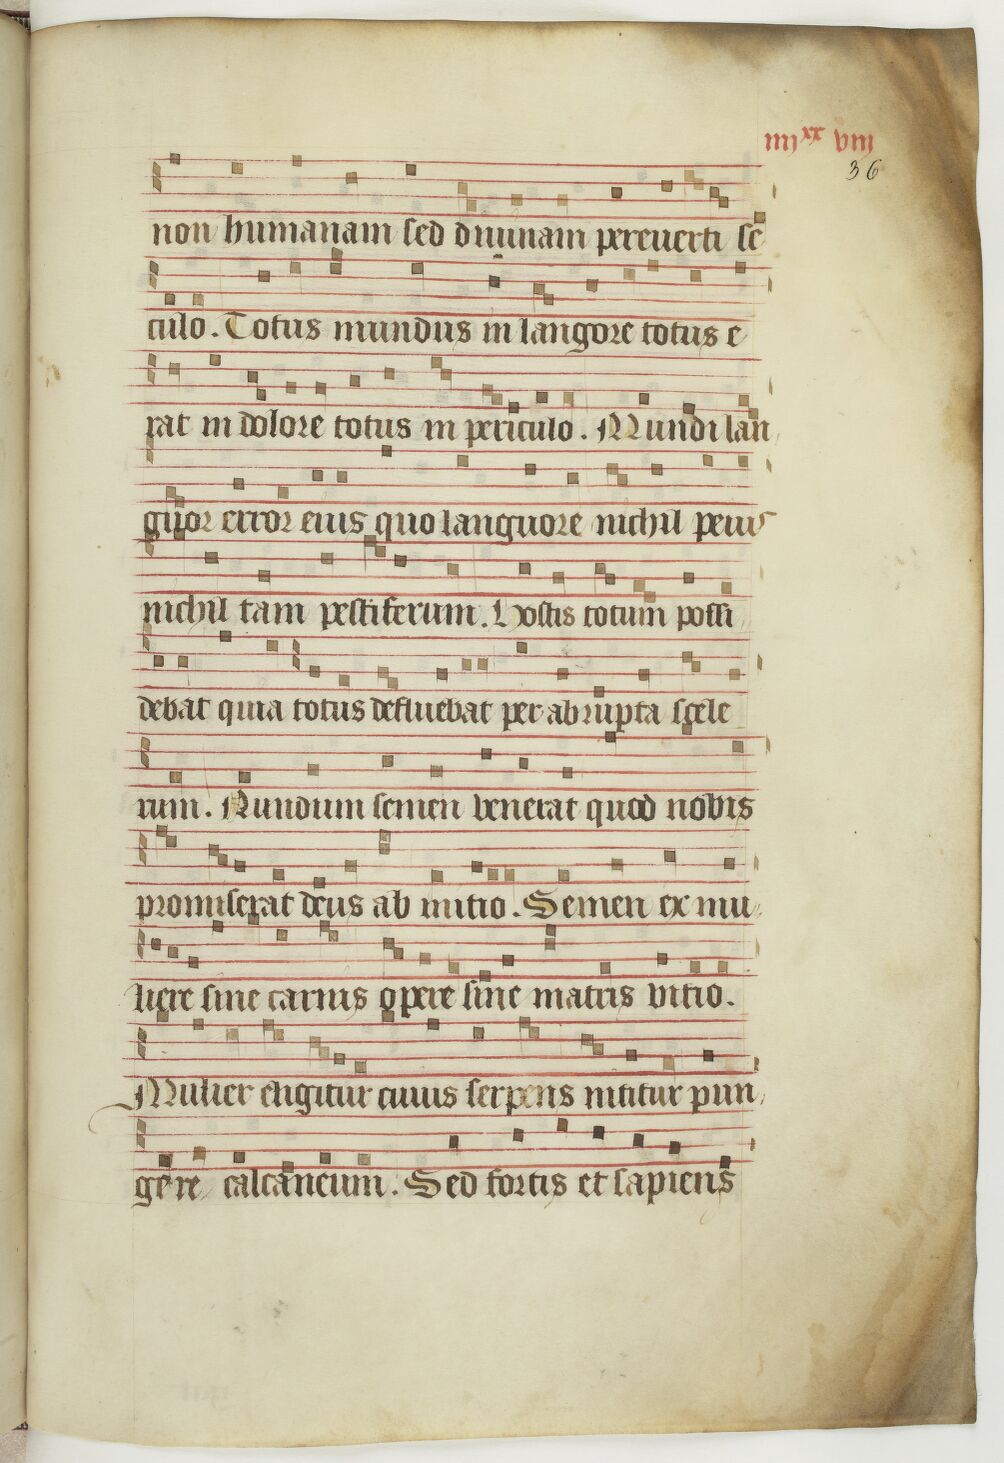 iiij xx viij
36
non humanam sed diuinam pereuerti se
culo. Totus mundus in langore totus e
rat in dolore totus in periculo. Mundi lan
guor error eius quo languore nichil peius
nichil tam pestiferum. Hostis totum possi
debat quia totus defluebat per abrupta scele
rum. Nundum semen venerat quod nobis
promiserat deus ab initio. Semen ex mu
liere sine carnis opere sine matris vitio.
Mulier eligitur cuius serpens nititur pun
gere calcaneum. Sed fortis et sapiens